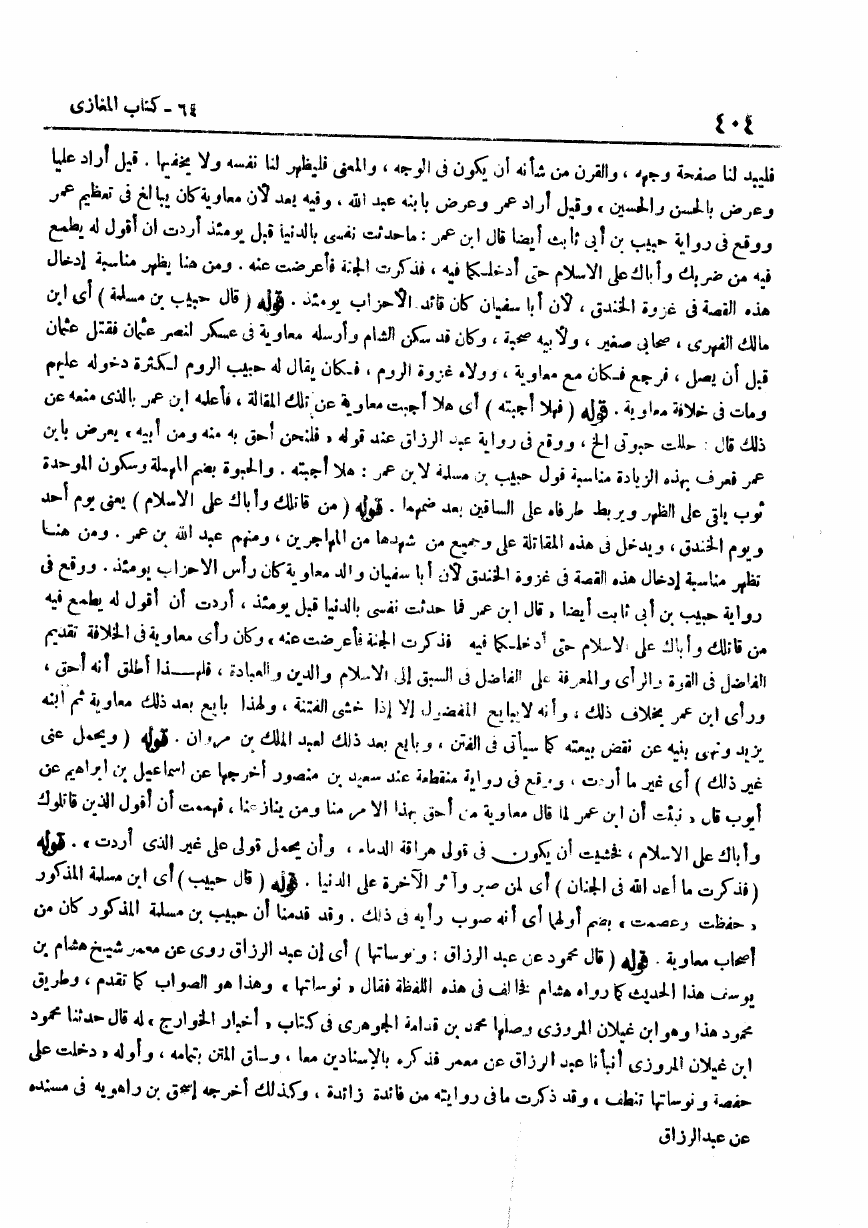 ٤٠٤
٦٤ - كتاب المغازى
فليبد لنا صفحة وجهه ، والقرن من شأنه أن يكون فى الوجه ، والمعنى فليظهر لنا نفسه ولا يخفيها . قيل أراد عليا
وعرض بالحسن والحسين ، وقيل أراد عمر وعرض بابنه عبد الله ، وفيه بعد لأن معاوية كان يبالغ فى تعظيم عمر
ووقع فى رواية حبيب بن أبى ثابت أيضا قال ابن عمر : ما حدثت نفسى بالدنيا قبل يومئذ أردت ان أقول له يطمع
فيه من ضربك وأباك على الاسلام حتى أدخلكما فيه ، فذكرت الجنة فأعرضت عنه . ومن هنا يظهر مناسبة إدخال
هذه القصة فى غزوة الخندق ، لأن أبا سفيان كان قائد الأحزاب يومئذ . قوله ( قال حبيب بن مسلمة ) أى ابن
مالك الفهرى ، صحابى صغير ، ولأبيه صحبة ، وكان قد سكن الشام وأرسله معاوية فى عسكر لنصر عثمان فقتل عثمان
قبل أن يصل ، فرجع فكان مع معاوية ، وولاه غزوة الروم ، فكان يقال له حبيب الروم لكثرة دخوله عليهم
ومات فى خلافة معاوية . قوله ( فهلا أجبته ) أى هلا أجبت معاوية عن تلك المقالة ، فأعلمه ابن عمر بالذى منعه عن
ذلك قال : حللت حبوتى الخ ، ووقع فى رواية عبد الرزاق عند قوله « فلنحن أحق به منه ومن أبيه » يعرض بابن
عمر فعرف بهذه الزيادة مناسبة قول حبيب بن مسلمة لابن عمر : هلا أجبته . والحبوة بضم المهملة وسكون الموحدة
ثوب يلقى على الظهر ويربط طرفاه على الساقين بعد ضمهما . قوله ( من قاتلك وأباك على الاسلام ) يعنى يوم أحد
ويوم الخندق ، ويدخل فى هذه المقاتلة على وجميع من شهدها من المهاجرين ، ومنهم عبد الله بن عمر . ومن هنا
تظهر مناسبة إدخال هذه القصة فى غزوة الخندق لأن أبا سفيان والد معاوية كان رأس الاحزاب يومئذ . ووقع فى
رواية حبيب بن أبى ثابت أيضا « قال ابن عمر فما حدثت نفسى بالدنيا قبل يومئذ ، أردت أن أقول له يطمع فيه
من قاتلك وأباك على الاسلام حتى أدخلكما فيه فذكرت الجنة فأعرضت عنه » وكان رأى معاوية فى الخلافة تقديم
الفاضل فى القوة والرأى والمعرفة على الفاضل فى السبق إلى الاسلام والدين والعبادة ، فلهذا أطلق أنه أحق ،
ورأى ابن عمر بخلاف ذلك ، وأنه لا يبايع المفضول إلا إذا خشى الفتنة ، ولهذا بايع بعد ذلك معاوية ثم ابنه
يزيد ونهى بنيه عن نقض بيعته كما سيأتى فى الفتن ، وبايع بعد ذلك لعبد الملك بن مروان . قوله ( ويحمل عنى
غير ذلك ) أى غير ما أردت ، ووقع فى رواية منقطعة عند سعيد بن منصور أخرجها عن اسماعيل بن ابراهيم عن
أيوب قال « نبئت أن ابن عمر لما قال معاوية من أحق بهذا الامر منا ومن ينازعنا ، فهممت أن أقول الذين قاتلوك
وأباك على الاسلام ، فخشيت أن يكون فى قولى هراقة الدماء ، وأن يحمل قولى على غير الذى أردت » . قوله
( فذكرت ما أعد الله فى الجنان ) أى لمن صبر وآثر الآخرة على الدنيا . قوله ( قال حبيب ) أى ابن مسلمة المذكور
« حفظت وعصمت » بضم أولهما أى أنه صوب رأيه فى ذلك . وقد قدمنا أن حبيب بن مسلمة المذكور كان من
أصحاب معاوية . قوله ( قال محمود عن عبد الرزاق : ونوساتها ) أى إن عبد الرزاق روى عن معمر شيخ هشام بن
يوسف هذا الحديث كما رواه هشام فخالف فى هذه اللفظة فقال « نوساتها » وهذا هو الصواب كما تقدم ، وطريق
محمود هذا وهو ابن غيلان المروزى وصلها محمد بن قدامة الجوهرى فى كتاب « أخبار الخوارج » له قال حدثنا محمود
ابن غيلان المروزى أنبأنا عبد الرزاق عن معمر فذكره بالإسنادين معا ، وساق المتن بتمامه ، وأوله « دخلت على
حفصة ونوساتها تنطف » وقد ذكرت ما فى روايته من فائدة زائدة ، وكذلك أخرجه إسحق بن راهويه فى مسنده
عن عبد الرزاق